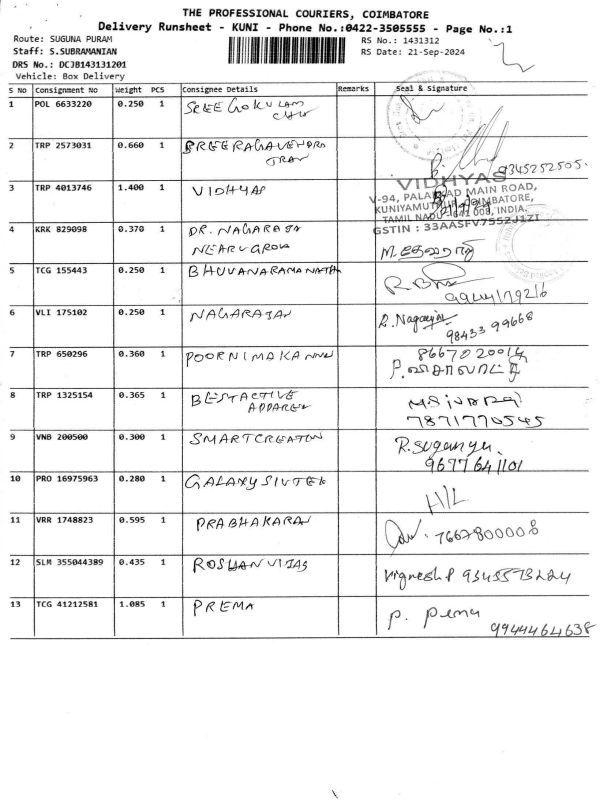 THE PROFESSIONAL COURIERS, COIMBATORE
Delivery Runsheet - KUNI - Phone No.:0422-3505555 - Page No.:1
Route: SUGUNA PURAM
Staff: S.SUBRAMANIAN
DRS No.: DCJB143131201
Vehicle: Box Delivery
RS No.: 1431312
RS Date: 21-Sep-2024
S No Consignment No Weight PCS Consignee Details Remarks Seal & Signature
1 POL 6633220 0.250 1 SREE GOKULAM
2 TRP 2573031 0.660 1 SREERAGAVENDRA
9345252505.
3 TRP 4013746 1.400 1 VIDHYAS
VIDHYAS
V-94, PALAKKAD MAIN ROAD,
KUNIYAMUTHUR, COIMBATORE,
TAMIL NADU - 641 008, INDIA.
GSTIN : 33AASFV7552J1ZI
4 KRK 829098 0.370 1 DR. NAGARAJA
5 TCG 155443 0.250 1 BHUVANARAMANATHA
9944179216
6 VLI 175102 0.250 1 NAGARAJAN R. Nagarajan
98433 99668
7 TRP 650296 0.360 1 POORNIMAKANNU 8667020014
8 TRP 1325154 0.365 1 BESTACTIVE
APPAREL
7871770545
9 VNB 200500 0.300 1 SMARTCREATION R.Suganya
9677641101
10 PRO 16975963 0.280 1 GALAXYSINTEK H/L
11 VRR 1748823 0.595 1 PRABHAKARAN 7667800008
12 SLM 355044389 0.435 1 ROSHANVIJAS Vignesh P 9345573224
13 TCG 41212581 1.085 1 PREMA P. Prema
9944464638